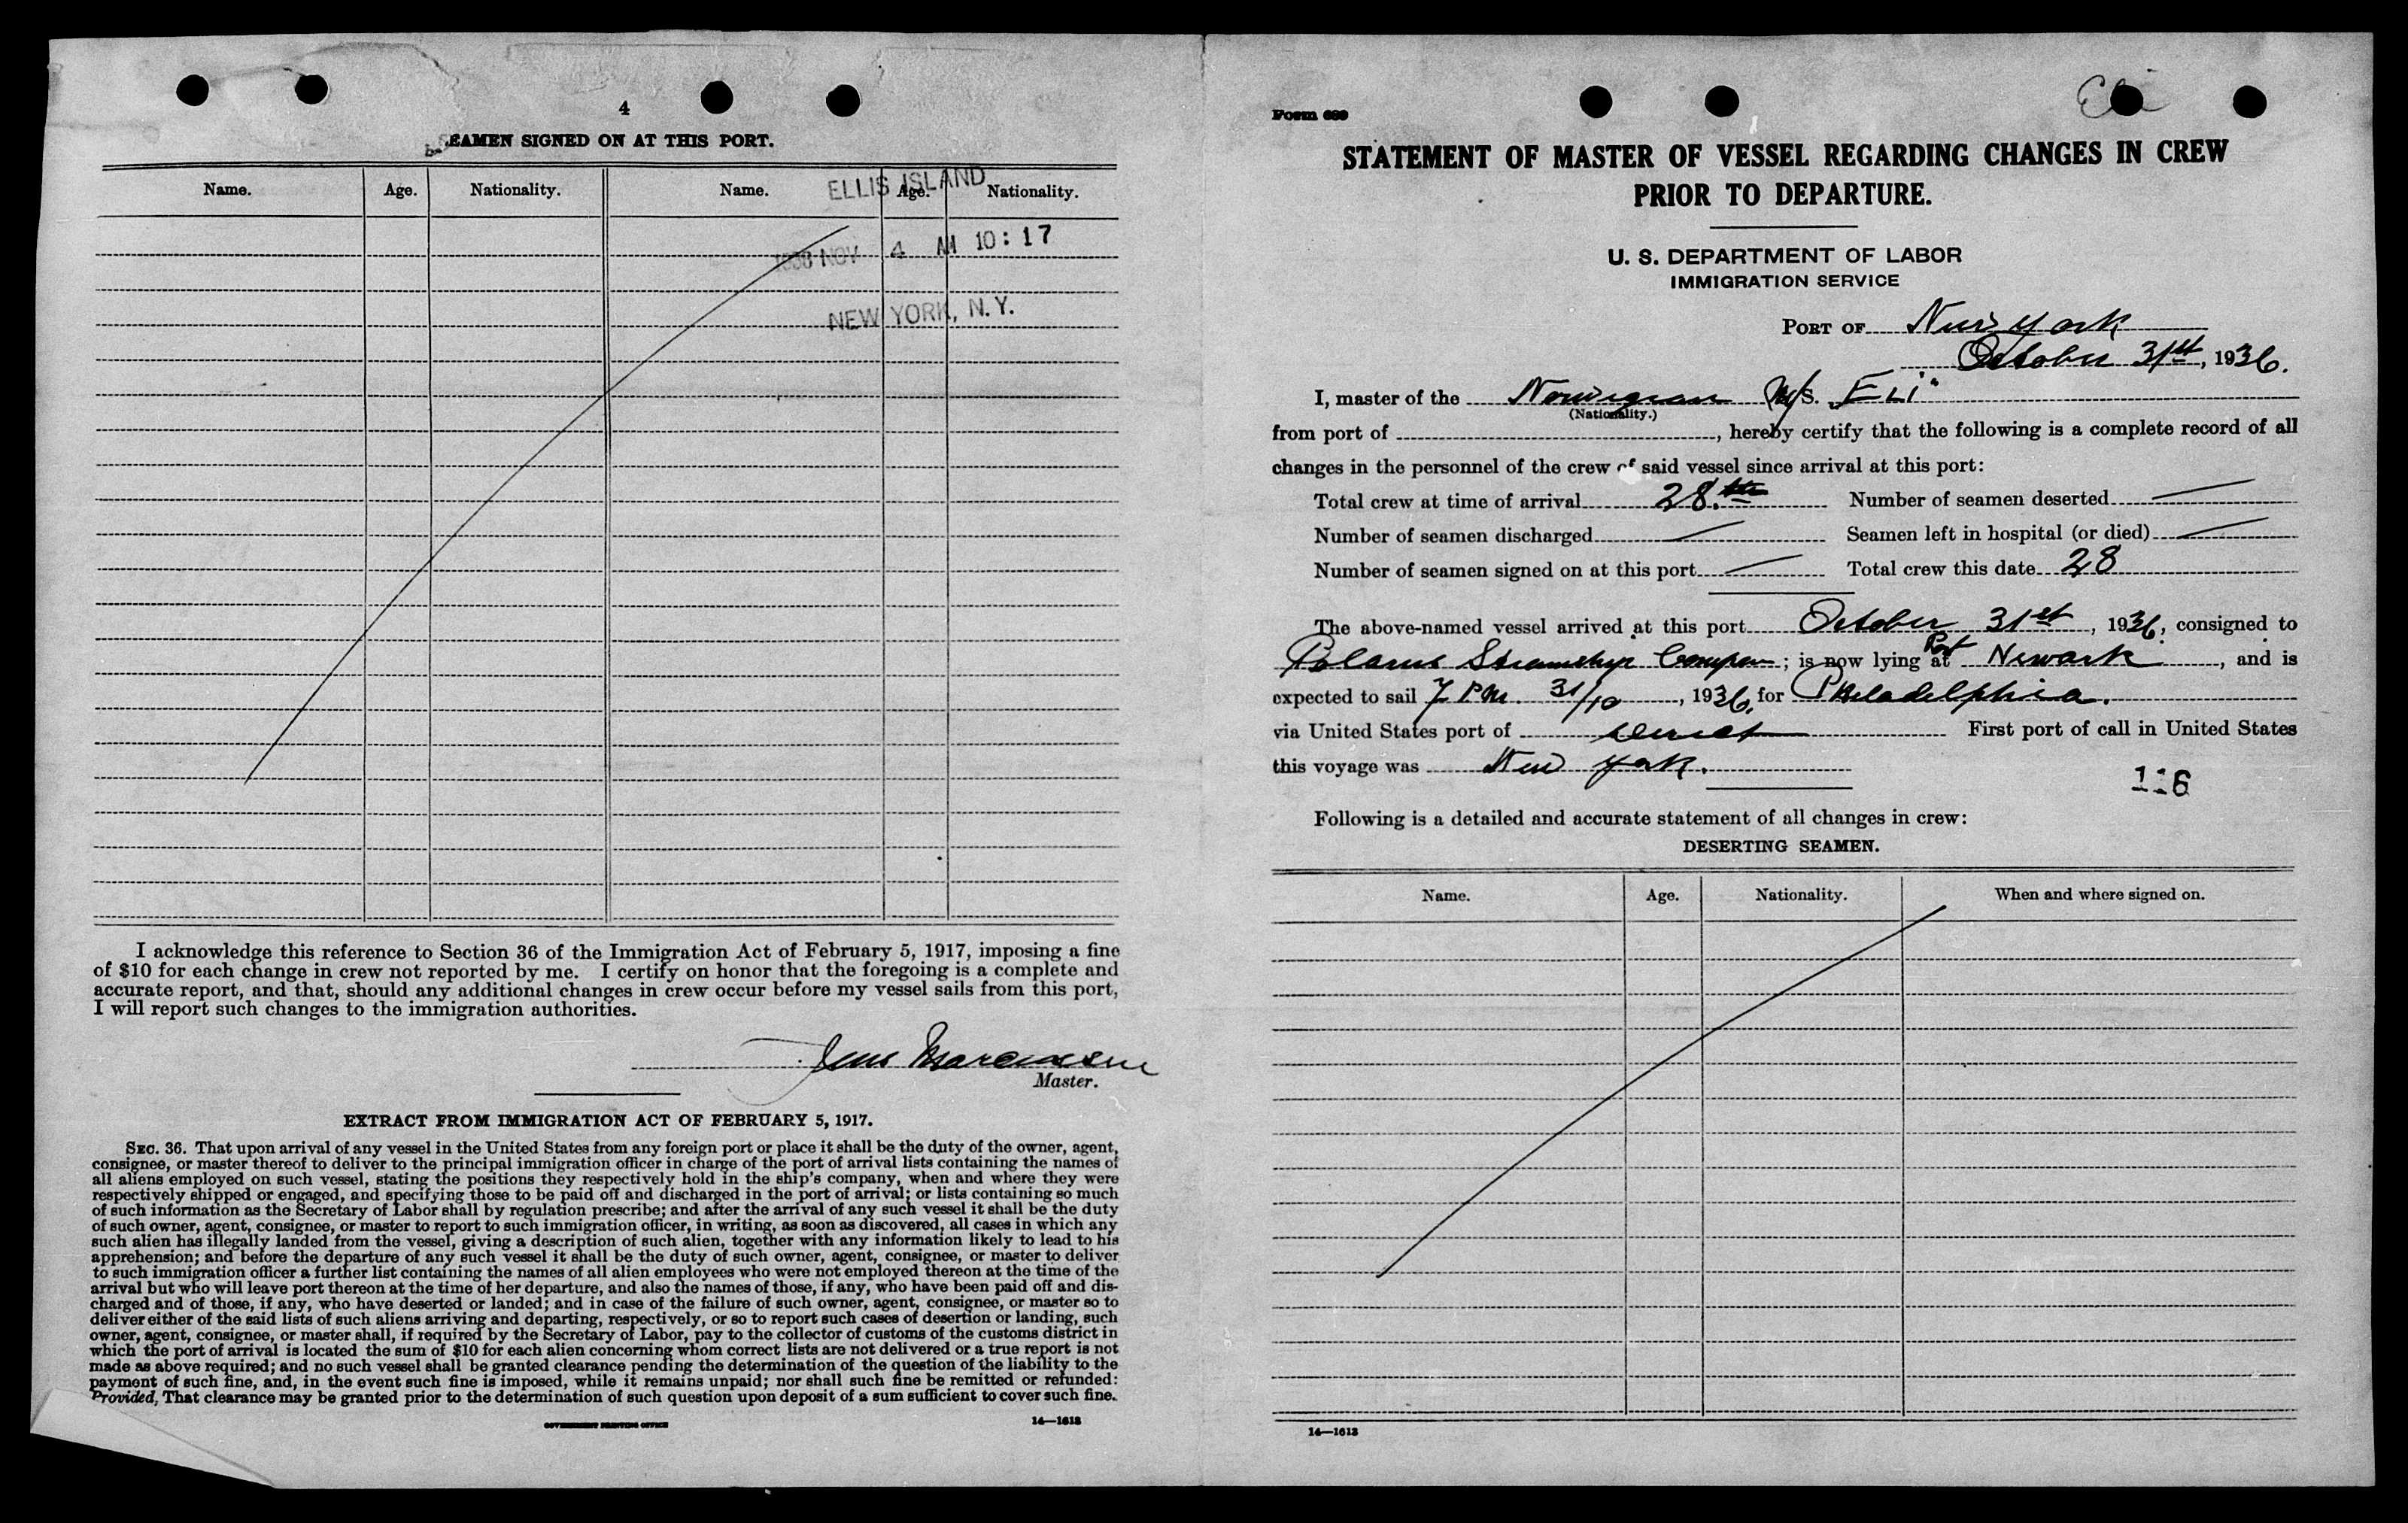 4
SEAMEN SIGNED ON AT THIS PORT.
Name. Age. Nationality. Name. Age. Nationality.
ELLIS ISLAND
NOV 4 AM 10:17
NEW YORK, N.Y.
I acknowledge this reference to Section 36 of the Immigration Act of February 5, 1917, imposing a fine
of $10 for each change in crew not reported by me. I certify on honor that the foregoing is a complete and
accurate report, and that, should any additional changes in crew occur before my vessel sails from this port,
I will report such changes to the immigration authorities.
Jens
Master.
EXTRACT FROM IMMIGRATION ACT OF FEBRUARY 5, 1917.
SEC. 36. That upon arrival of any vessel in the United States from any foreign port or place it shall be the duty of the owner, agent,
consignee, or master thereof to deliver to the principal immigration officer in charge of the port of arrival lists containing the names of
all aliens employed on such vessel, stating the positions they respectively hold in the ship's company, when and where they were
respectively shipped or engaged, and specifying those to be paid off and discharged in the port of arrival; or lists containing so much
of such information as the Secretary of Labor shall by regulation prescribe; and after the arrival of any such vessel it shall be the duty
of such owner, agent, consignee, or master to report to such immigration officer, in writing, as soon as discovered, all cases in which any
such alien has illegally landed from the vessel, giving a description of such alien, together with any information likely to lead to his
apprehension; and before the departure of any such vessel it shall be the duty of such owner, agent, consignee, or master to deliver
to such immigration officer a further list containing the names of all alien employees who were not employed thereon at the time of the
arrival but who will leave port thereon at the time of her departure, and also the names of those, if any, who have been paid off and dis-
charged and of those, if any, who have deserted or landed; and in case of the failure of such owner, agent, consignee, or master so to
deliver either of the said lists of such aliens arriving and departing, respectively, or so to report such cases of desertion or landing, such
owner, agent, consignee, or master shall, if required by the Secretary of Labor, pay to the collector of customs of the customs district in
which the port of arrival is located the sum of $10 for each alien concerning whom correct lists are not delivered or a true report is not
made as above required; and no such vessel shall be granted clearance pending the determination of the question of the liability to the
payment of such fine, and, in the event such fine is imposed, while it remains unpaid; nor shall such fine be remitted or refunded:
Provided, That clearance may be granted prior to the determination of such question upon deposit of a sum sufficient to cover such fine.
GOVERNMENT PRINTING OFFICE 14—1613
Eli
Form 689
STATEMENT OF MASTER OF VESSEL REGARDING CHANGES IN CREW
PRIOR TO DEPARTURE.
U. S. DEPARTMENT OF LABOR
IMMIGRATION SERVICE
PORT OF New York
October 31st, 1936.
I, master of the Norwegian M/S. "ELI"
(Nationality.)
from port of , hereby certify that the following is a complete record of all
changes in the personnel of the crew of said vessel since arrival at this port:
Total crew at time of arrival 28. Number of seamen deserted —
Number of seamen discharged — Seamen left in hospital (or died) —
Number of seamen signed on at this port — Total crew this date 28
The above-named vessel arrived at this port October 31st, 1936, consigned to
Steamship ; is now lying at Port Newark , and is
expected to sail 7 P.M. 31/10, 1936, for Philadelphia.
via United States port of direct First port of call in United States
this voyage was New York.
116
Following is a detailed and accurate statement of all changes in crew:
DESERTING SEAMEN.
Name. Age. Nationality. When and where signed on.
14—1613